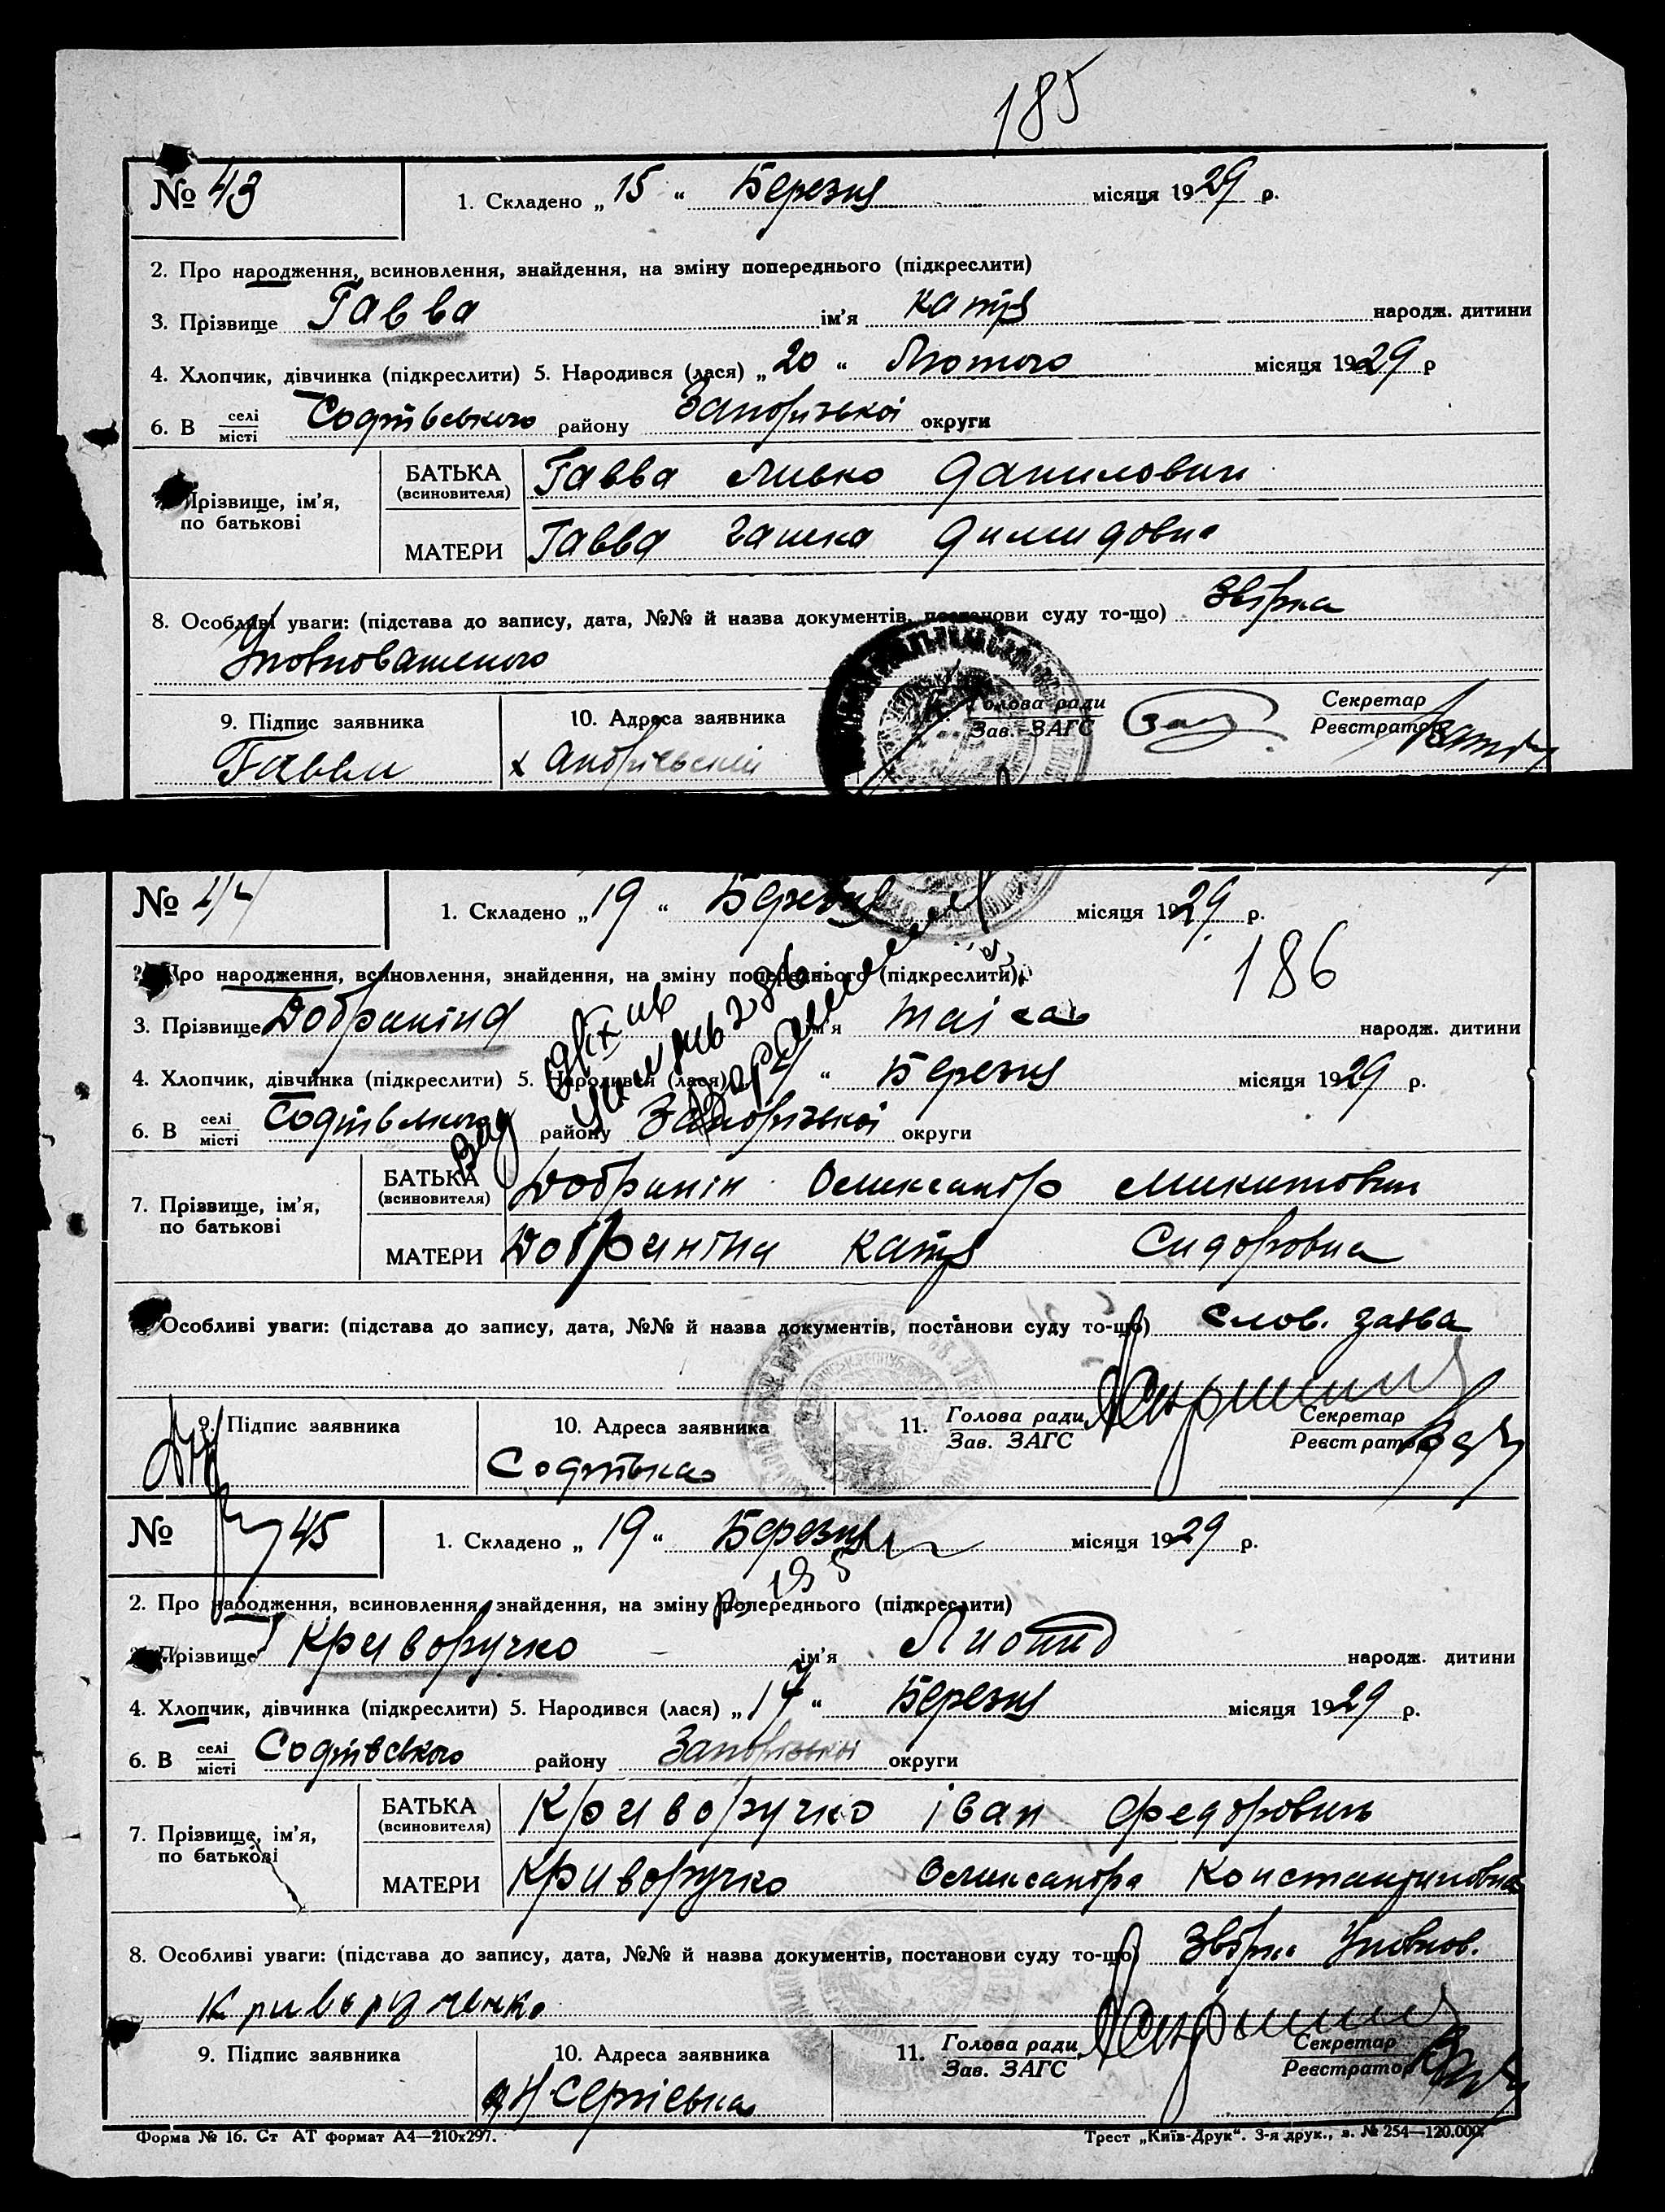 185
№ 43 1. Складено „ 15 “ Березня місяця 1929 р.
2. Про народження, всиновлення, знайдення, на зміну попереднього (підкреслити)
3. Прізвище Гавва ім'я Катя народж. дитини
4. Хлопчик, дівчинка (підкреслити) 5. Народився (лася) „ 20 “ Лютого місяця 1929 р
6. В селі місті Софіївського району Запорізької округи
Прізвище, ім'я, по батькові
БАТЬКА (всиновителя) Гавва Левко Данилович
МАТЕРИ Гавва Гашка Димидовна
8. Особливі уваги: (підстава до запису, дата, №№ й назва документів, постанови суду то-що) Звірка
Уповноваженого
9. Підпис заявника 10. Адреса заявника Голова ради Зав. ЗАГС Секретар Реєстратор
Гавви
№ 44 1. Складено „ 19 “ Березня місяця 1929 р.
186
Про народження, всиновлення, знайдення, на зміну попереднього (підкреслити)
3. Прізвище Добраніна ім'я Таіса народж. дитини
4. Хлопчик, дівчинка (підкреслити) 5. Народився (лася) “ Березня місяця 1929 р.
6. В селі місті Софіївського району Запорізької округи
7. Прізвище, ім'я, по батькові
БАТЬКА (всиновителя) Добранін Олександр Микитович
МАТЕРИ Добраніна Катя Сидоровна
Особливі уваги: (підстава до запису, дата, №№ й назва документів, постанови суду то-що) Слов. заява
9. Підпис заявника 10. Адреса заявника 11. Голова ради Зав. ЗАГС Секретар Реєстратор
Софіївка
№ 45 1. Складено „ 19 “ Березня місяця 1929 р.
2. Про народження, всиновлення, знайдення, на зміну попереднього (підкреслити)
Прізвище Криворучко ім'я Лионид народж. дитини
4. Хлопчик, дівчинка (підкреслити) 5. Народився (лася) „ 17 “ Березня місяця 1929 р.
6. В селі місті Софіївського району Запорізької округи
7. Прізвище, ім'я, по батькові
БАТЬКА (всиновителя) Криворучко Іван Федорович
МАТЕРИ Криворучко Олександра Константиновна
8. Особливі уваги: (підстава до запису, дата, №№ й назва документів, постанови суду то-що) Звірка Уповнов.
Криворученко
9. Підпис заявника 10. Адреса заявника 11. Голова ради Зав. ЗАГС Секретар Реєстратор
Сергіевка
Форма № 16. Ст АТ формат А4—210х297. Трест „Київ-Друк“. 3-я друк., з. № 254—120.000.